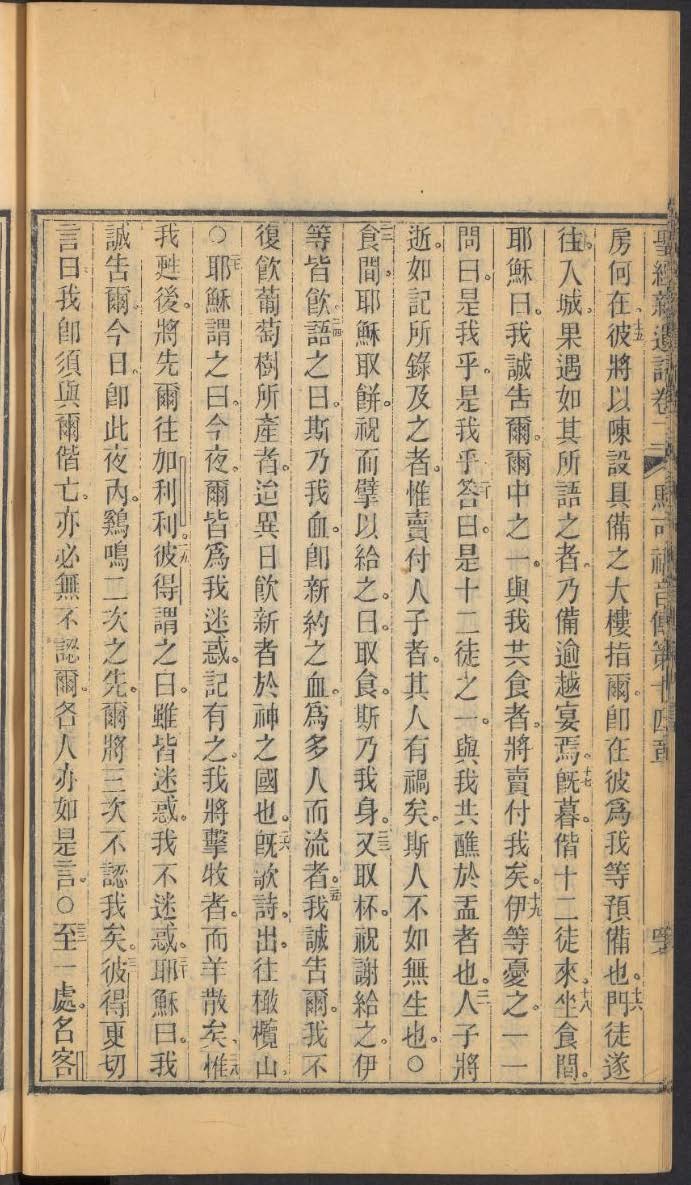 聖經新遺詔卷二 馬可福音傳第十四章
房何在。十五彼將以陳設具備之大樓指爾。卽在彼爲我等預備也。十六門徒遂
往入城。果遇如其所語之者。乃備逾越宴焉。十七旣暮。偕十二徒來。十八坐食間。
耶穌曰。我誠吿爾。爾中之一。與我共食者。將賣付我矣。十九伊等憂之。一一
問曰。是我乎。是我乎。二十答曰。是十二徒之一。與我共醮於盂者也。二一人子將
逝。如記所錄及之者。惟賣付人子者。其人有禍矣。斯人不如無生也。○
二二食間。耶穌取餅。祝而擘以給之。曰。取食。斯乃我身。二三又取杯。祝謝給之。伊
等皆飮。二四語之曰。斯乃我血。卽新約之血。爲多人而流者。二五我誠吿爾。我不
復飮葡萄樹所產者。迨異日飮新者於神之國也。二六旣歌詩。出往橄欖山。
○二七耶穌謂之曰。今夜。爾皆爲我迷惑。記有之。我將擊牧者。而羊散矣。二八惟
我甦後。將先爾往加利利。二九彼得謂之曰。雖皆迷惑。我不迷惑。三十耶穌曰。我
誠吿爾。今日。卽此夜內。鷄鳴二次之先。爾將三次不認我矣。三一彼得更切
言曰。我卽須與爾偕亡。亦必無不認爾。各人亦如是言。○三二至一處。名客